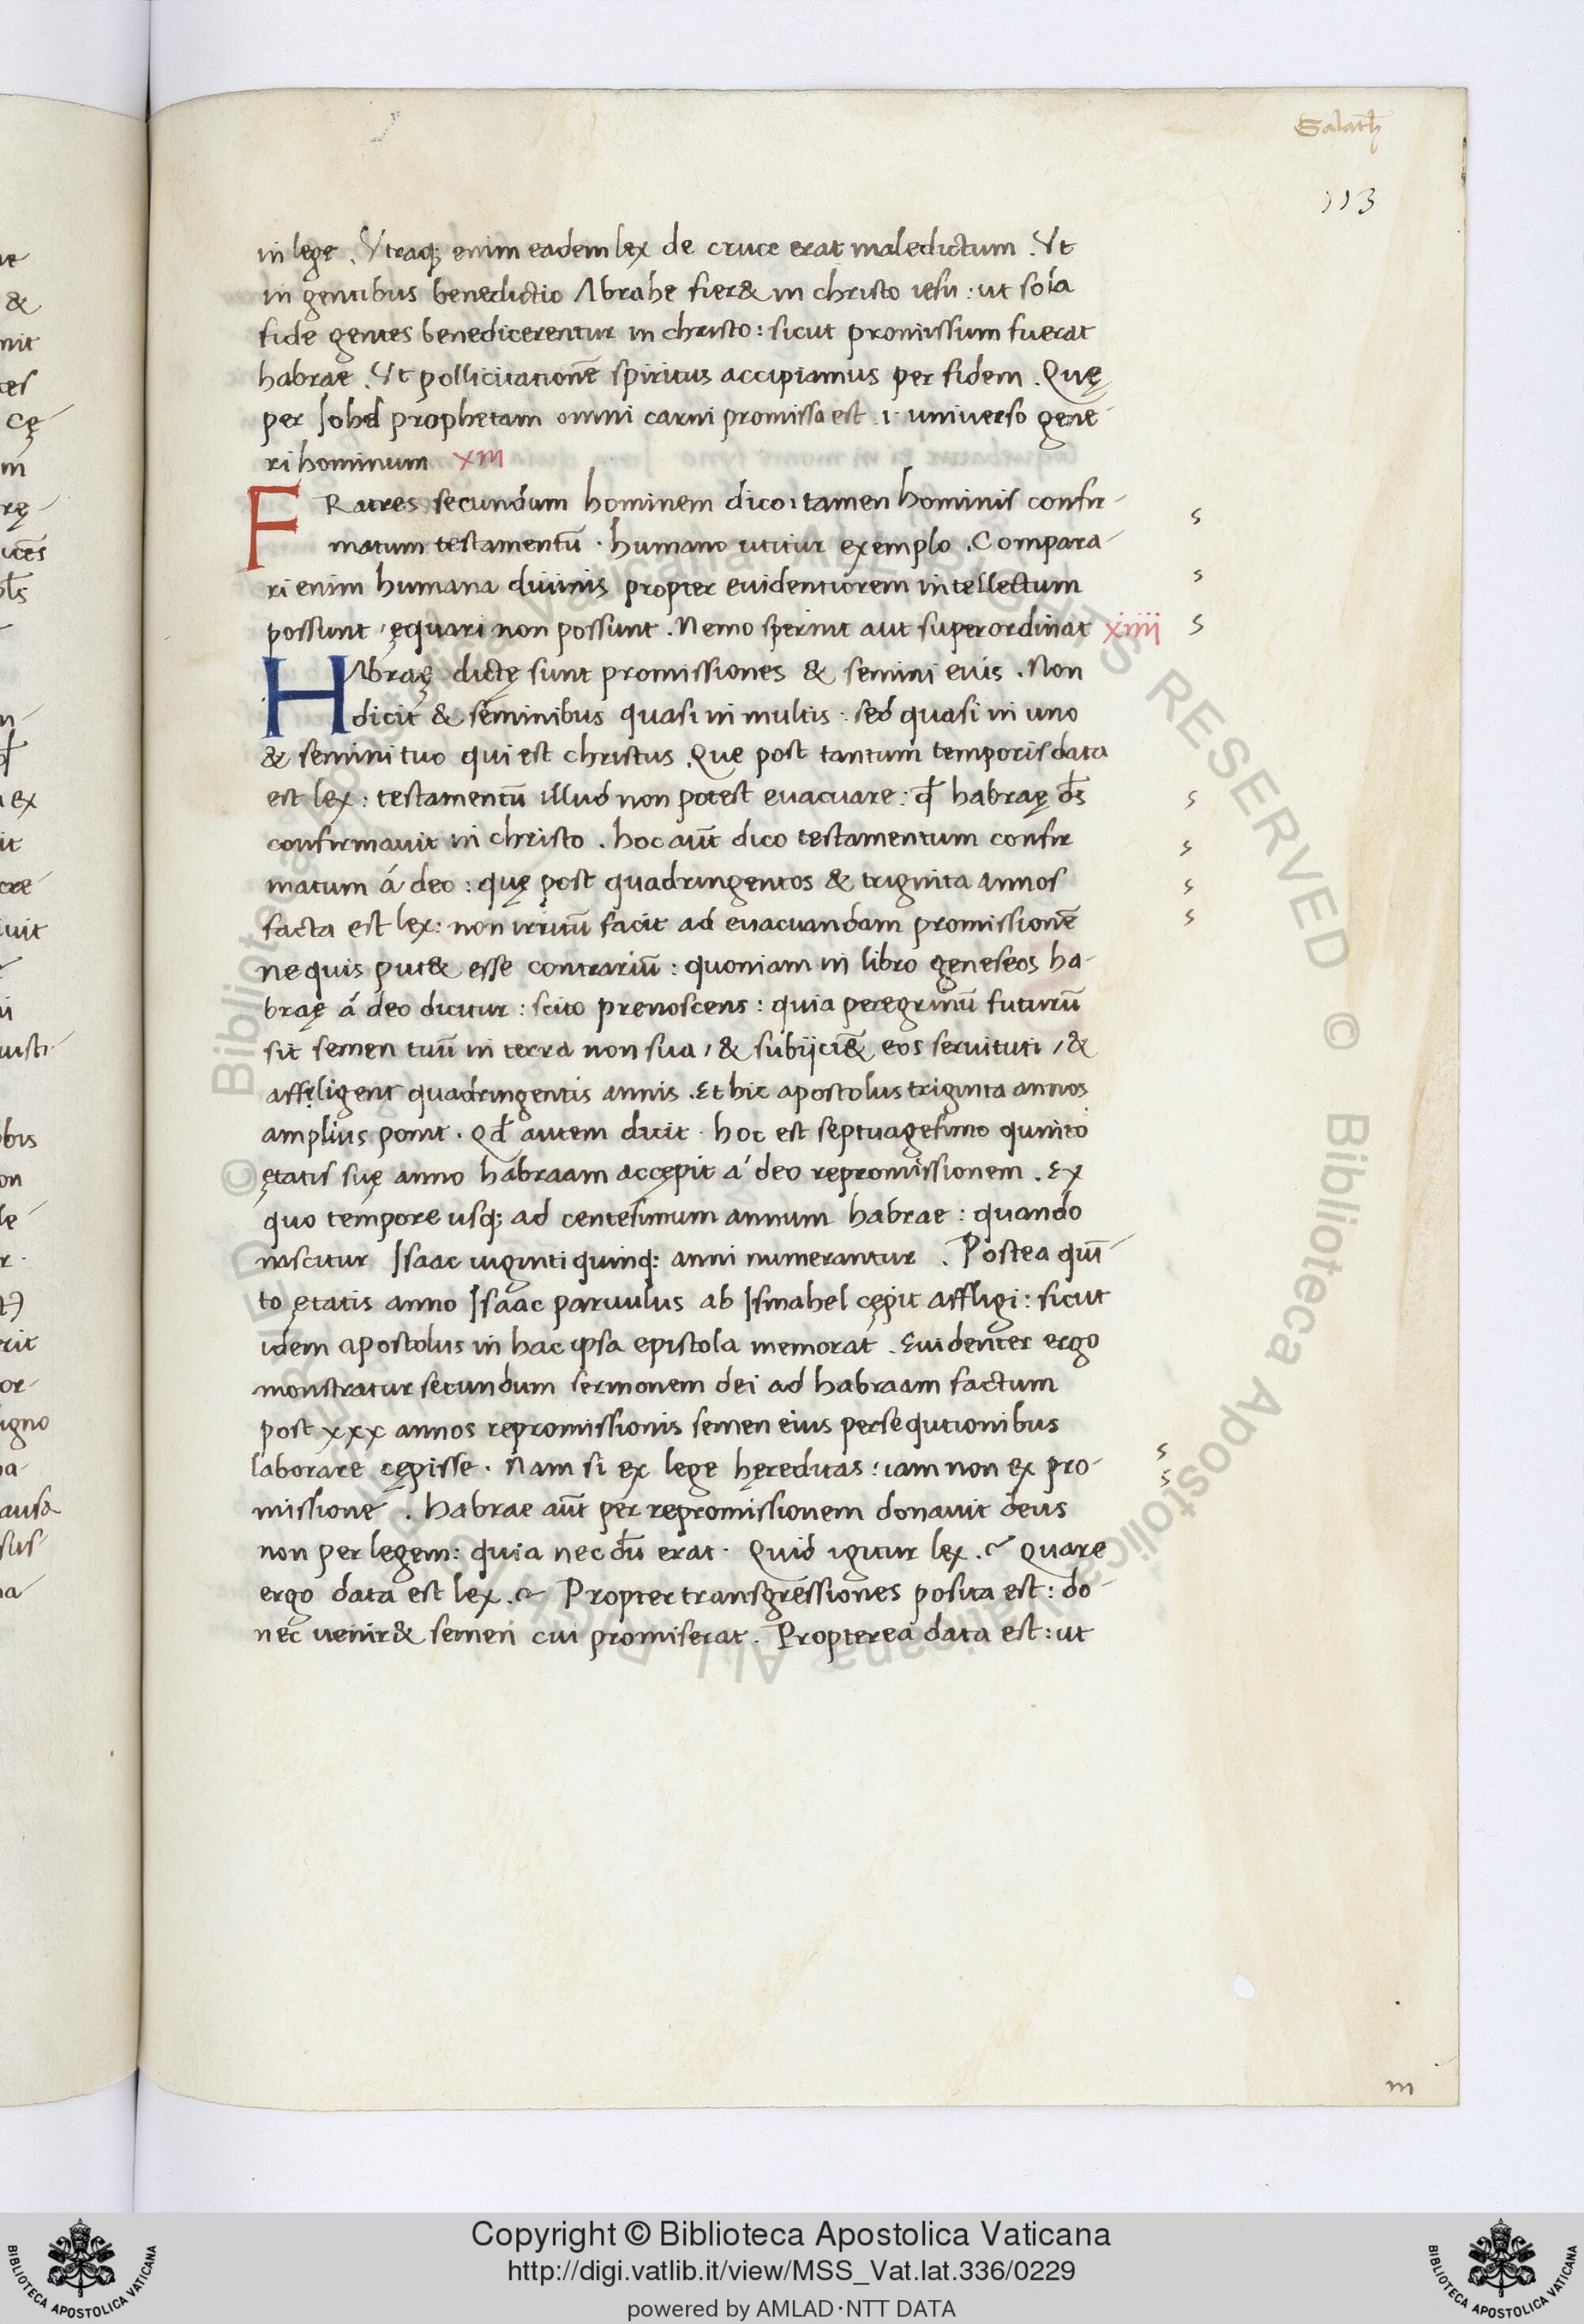 Galath
113
in lege . Vtraq; enim eadem lex de cruce erat maledictum . Vt
in gentibus benedictio Abrahe fier& in christo iesu : ut sola
fide gentes benedicerentur in christo : sicut promissum fuerat
habrae . Vt pollicitationē spiritus accipiamus per fidem . Quę
per Johel prophetam omni carni promissa est .i. universo gene-
ri hominum xiii
FRatres secundum hominem dico : tamen hominis confir-
matum testamentū . humano utitur exemplo . Compara-
ri enim humana divinis propter evidentiorem intellectum
possunt , ęquari non possunt . Nemo spernit aut superordinat xiiii
HAbraę dictę sunt promissiones & semini eius . Non
dicit & seminibus quasi in multis : sed quasi in uno
& semini tuo qui est christus . Que post tantum temporis data
est lex : testamentū illud non potest evacuare : qđ habraę d̄s
confirmavit in christo . hoc aūt dico testamentum confir
matum á deo : quę post quadringentos & triginta annos
facta est lex : non irritū facit ad evacuandam promissionē
ne quis put& esse contrariū : quoniam in libro geneseos ha-
braę á deo dicitur : scito prenoscens : quia peregrinū futurū
sit semen tuū in terra non sua , & subijciē& eos servituti , &
affęligent quadringentis annis . Et hic apostolus triginta annos
amplius ponit . Qđ autem dicit . hoc est septuagesimo quinto
ętatis suę anno habraam accępit á deo repromissionem . Ex
quo tempore usq; ad centesimum annum habrae : quando
nascitur Jsaac viginti quinq; anni numerantur . Postea quī-
to ętatis anno Jsaac parvulus ab Jsmahel cępit affligi : sicut
idem apostolus in hac ipsa epistola memorat . Evidenter ergo
monstratur secundum sermonem dei ad habraam factum
post xxx annos repromissionis semen eius persequtionibus
laborare cępisse . Nam si ex lege hęreditas : iam non ex pro-
missione . Habrae aūt per repromissionem donavit deus
non per legem : quia nec dū erat . Quid igitur lex .~ Quare
ergo data est lex .~ Propter transgressiones posita est : do-
nec venir& semen cui promiserat . Propterea data est : ut
m
Copyright © Biblioteca Apostolica Vaticana
http://digi.vatlib.it/view/MSS_Vat.lat.336/0229
powered by AMLAD·NTT DATA
BIBLIOTECA APOSTOLICA VATICANA
BIBLIOTECA APOSTOLICA VATICANA